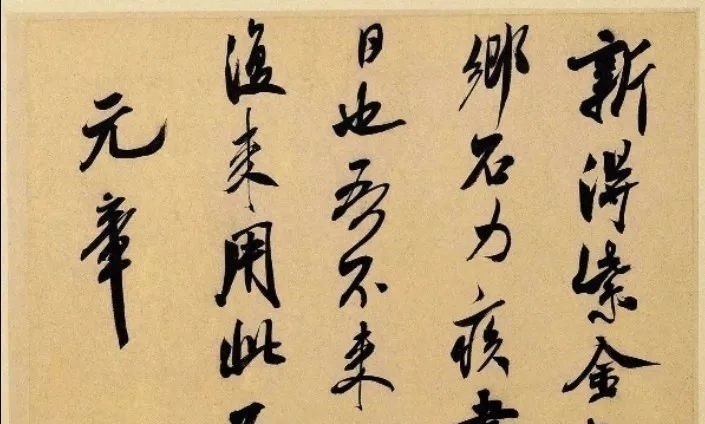 新得紫金
鄉石力疾
日也吾不来
復来用此
元章